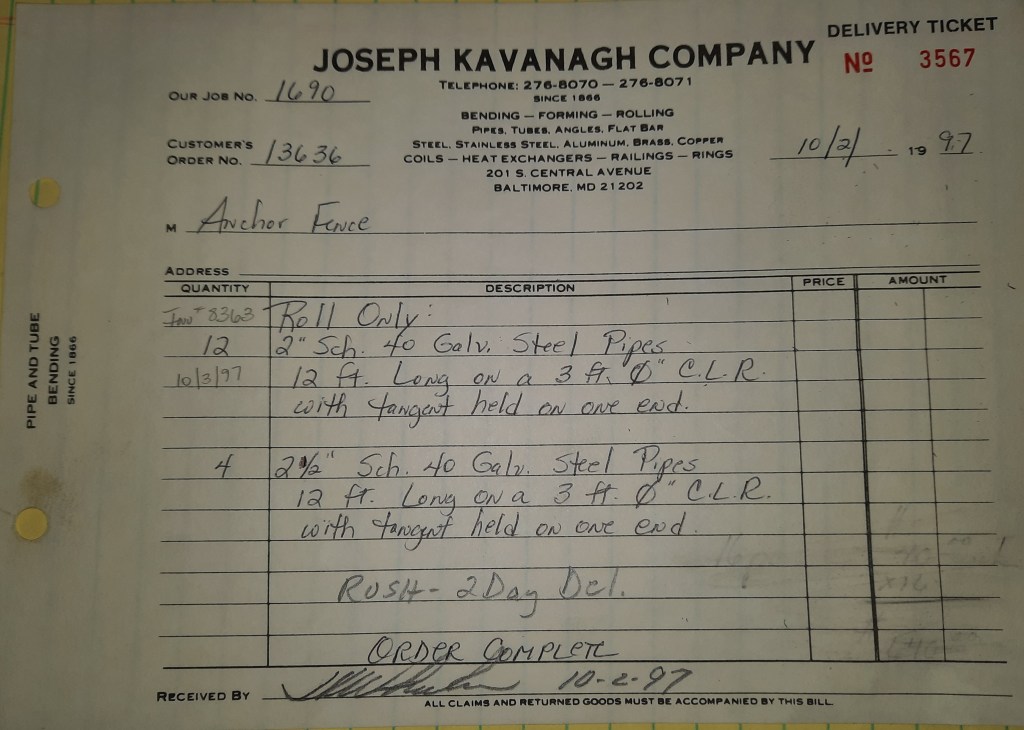 DELIVERY TICKET
JOSEPH KAVANAGH COMPANY
Nº 3567
TELEPHONE: 276-8070 — 276-8071
SINCE 1866
OUR JOB NO. 1690
BENDING — FORMING — ROLLING
PIPES, TUBES, ANGLES, FLAT BAR
STEEL, STAINLESS STEEL, ALUMINUM, BRASS, COPPER
CUSTOMER'S
ORDER NO. 13636
COILS — HEAT EXCHANGERS — RAILINGS — RINGS
10/2/ 19 97
201 S. CENTRAL AVENUE
BALTIMORE, MD 21202
M Anchor Fence
ADDRESS
QUANTITY DESCRIPTION PRICE AMOUNT
8363 Roll Only:
12 2" Sch. 40 Galv. Steel Pipes
10/3/97 12 ft. Long on a 3 ft. Ø" C.L.R.
with tangent held on one end.
4 2½" Sch. 40 Galv. Steel Pipes
12 ft. Long on a 3 ft. Ø" C.L.R.
with tangent held on one end.
RUSH - 2 Day Del.
ORDER COMPLETE
RECEIVED BY 10-2-97
ALL CLAIMS AND RETURNED GOODS MUST BE ACCOMPANIED BY THIS BILL.
PIPE AND TUBE
BENDING
SINCE 1866